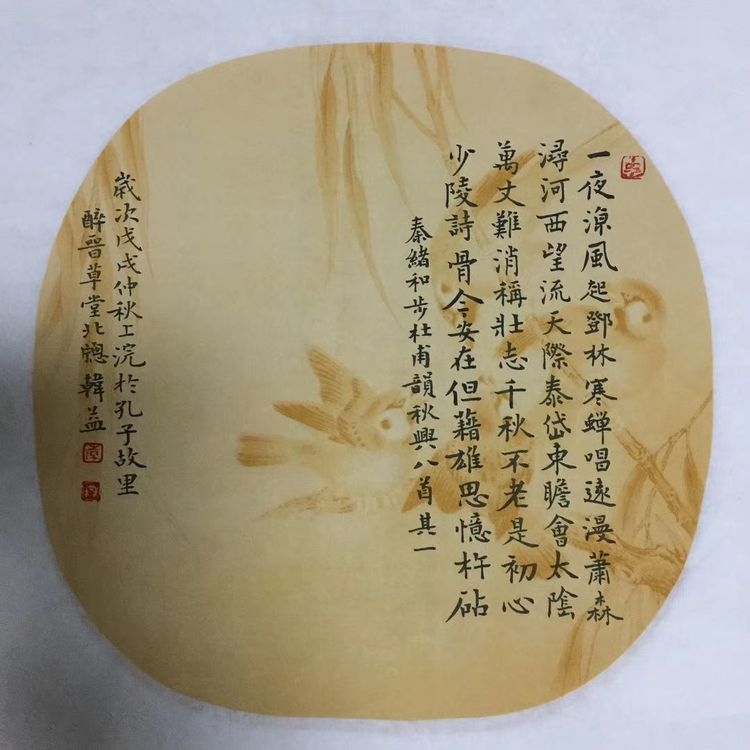 一夜涼風起鄧林寒蟬唱遠漫蕭森
潯河西望流天際泰岱東瞻會太陰
萬丈難消稱壯志千秋不老是初心
少陵詩骨今安在但籍雄思憶杵砧
秦緒和步杜甫韻秋興八首其一
歲次戊戌仲秋上浣於孔子故里
醉晉草堂北牕韓益